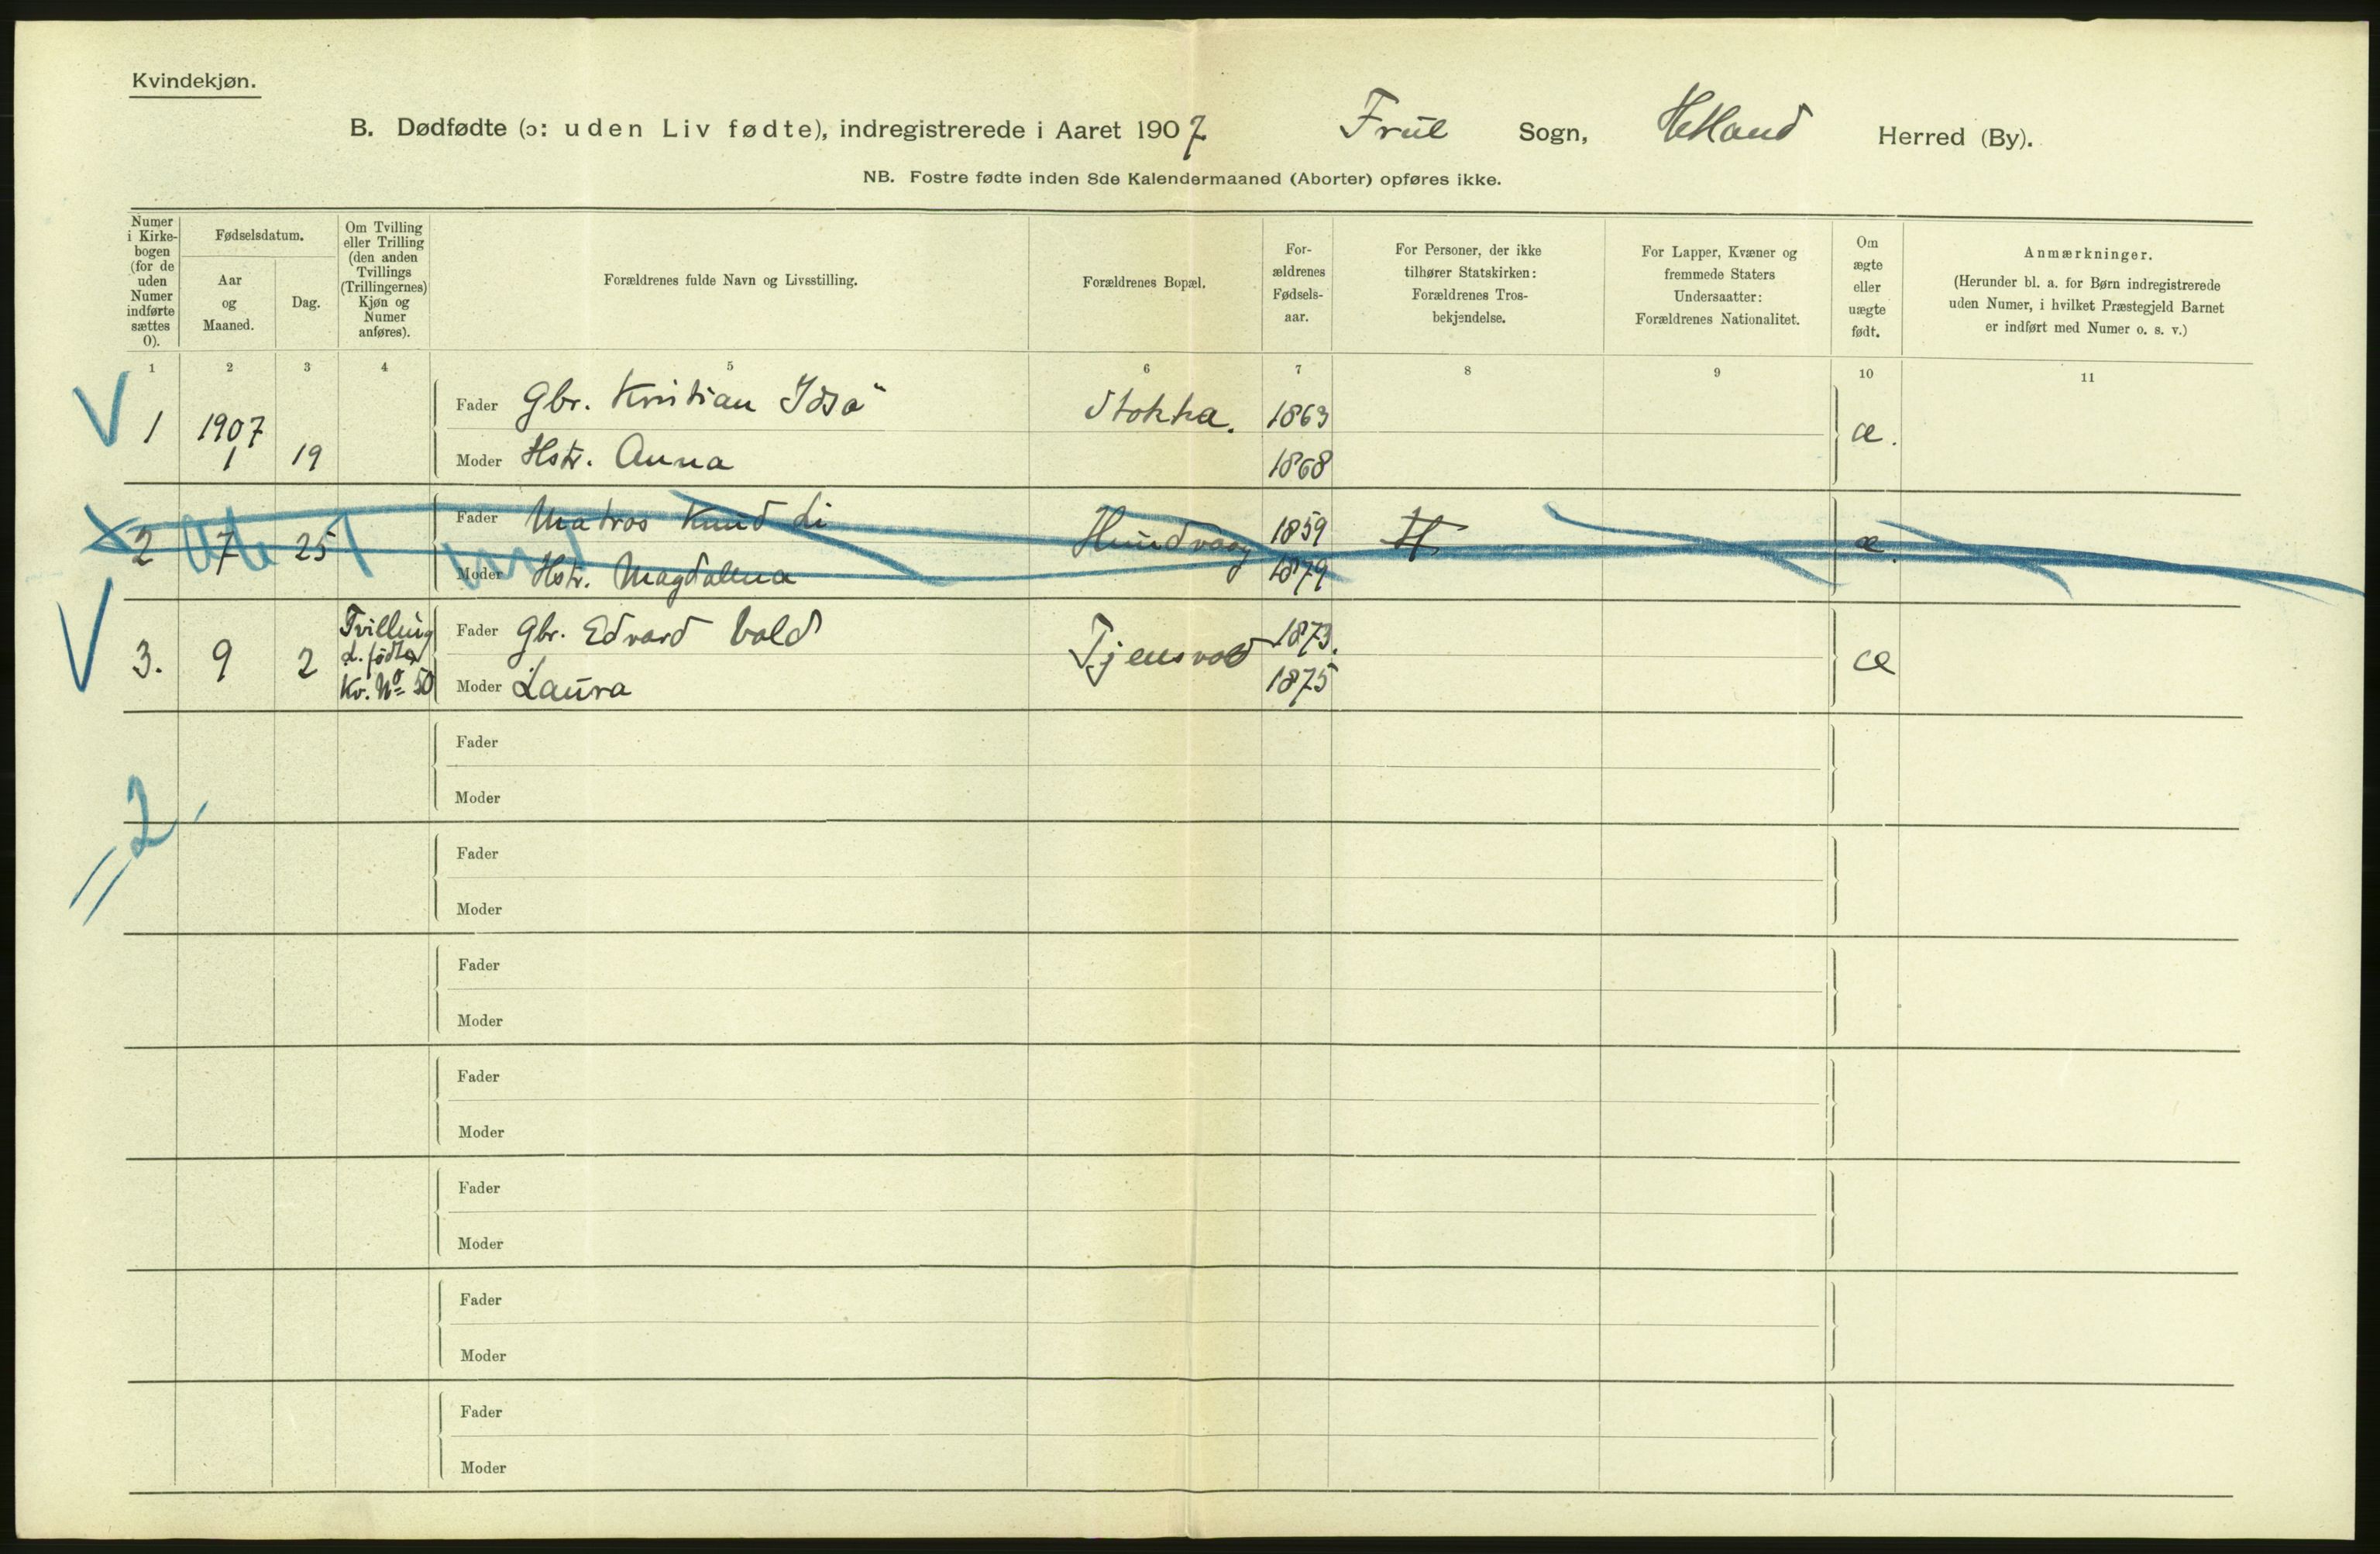 Kvindekjøn.
B. Dødfødte (ɔ: uden Liv fødte), indregistrerede i Aaret 1907 Frue Sogn, Hetland Herred (By).
NB. Fostre fødte inden 8de Kalendermaaned (Aborter) opføres ikke.
Numer i Kirke-bogen (for de uden Numer indførte sættes 0).
Fødselsdatum.
Aar og Maaned.
Dag.
Om Tvilling eller Trilling (den anden Tvillings (Trillingernes) Kjøn og Numer anføres).
Forældrenes fulde Navn og Livsstilling.
Forældrenes Bopæl.
For-ældrenes Fødsels-aar.
For Personer, der ikke tilhører Statskirken: Forældrenes Tros-bekjendelse.
For Lapper, Kvæner og fremmede Staters Undersaatter: Forældrenes Nationalitet.
Om ægte eller uægte født.
Anmærkninger.
(Herunder bl. a. for Børn indregistrerede uden Numer, i hvilket Præstegjeld Barnet er indført med Numer o. s. v.)
1 2 3 4 5 6 7 8 9 10 11
V 1 1907 1 19 Fader Gbr. Kristian Idsö Stokka. 1863 æ.
Moder Hstr. Anna 1868
2 7 25 Fader Matros Knud Li Hundvaag 1859 H æ.
Moder Hstr. Magdalena 1879
V 3. 9 2 Tvilling L. födte Kv. No 50 Fader Gbr. Edvard Vold Tjensvold 1873. æ
Moder Laura 1875
Fader
Moder
2
Fader
Moder
Fader
Moder
Fader
Moder
Fader
Moder
Fader
Moder
Fader
Moder